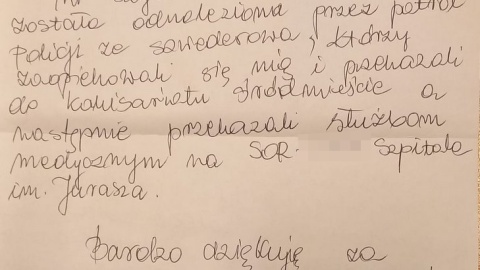 została odnaleziona przez patrol
policji ze szwederowa, którzy
zaopiekowali się mną i przekazali
do komisariatu śródmieście a
następnie przekazali służbom
medycznym na SOR. Szpitala
im. Jurasza.
Bardzo dziękuję za